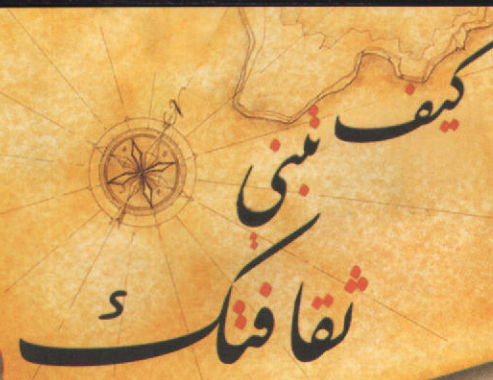 كيف تبني
ثقافتك